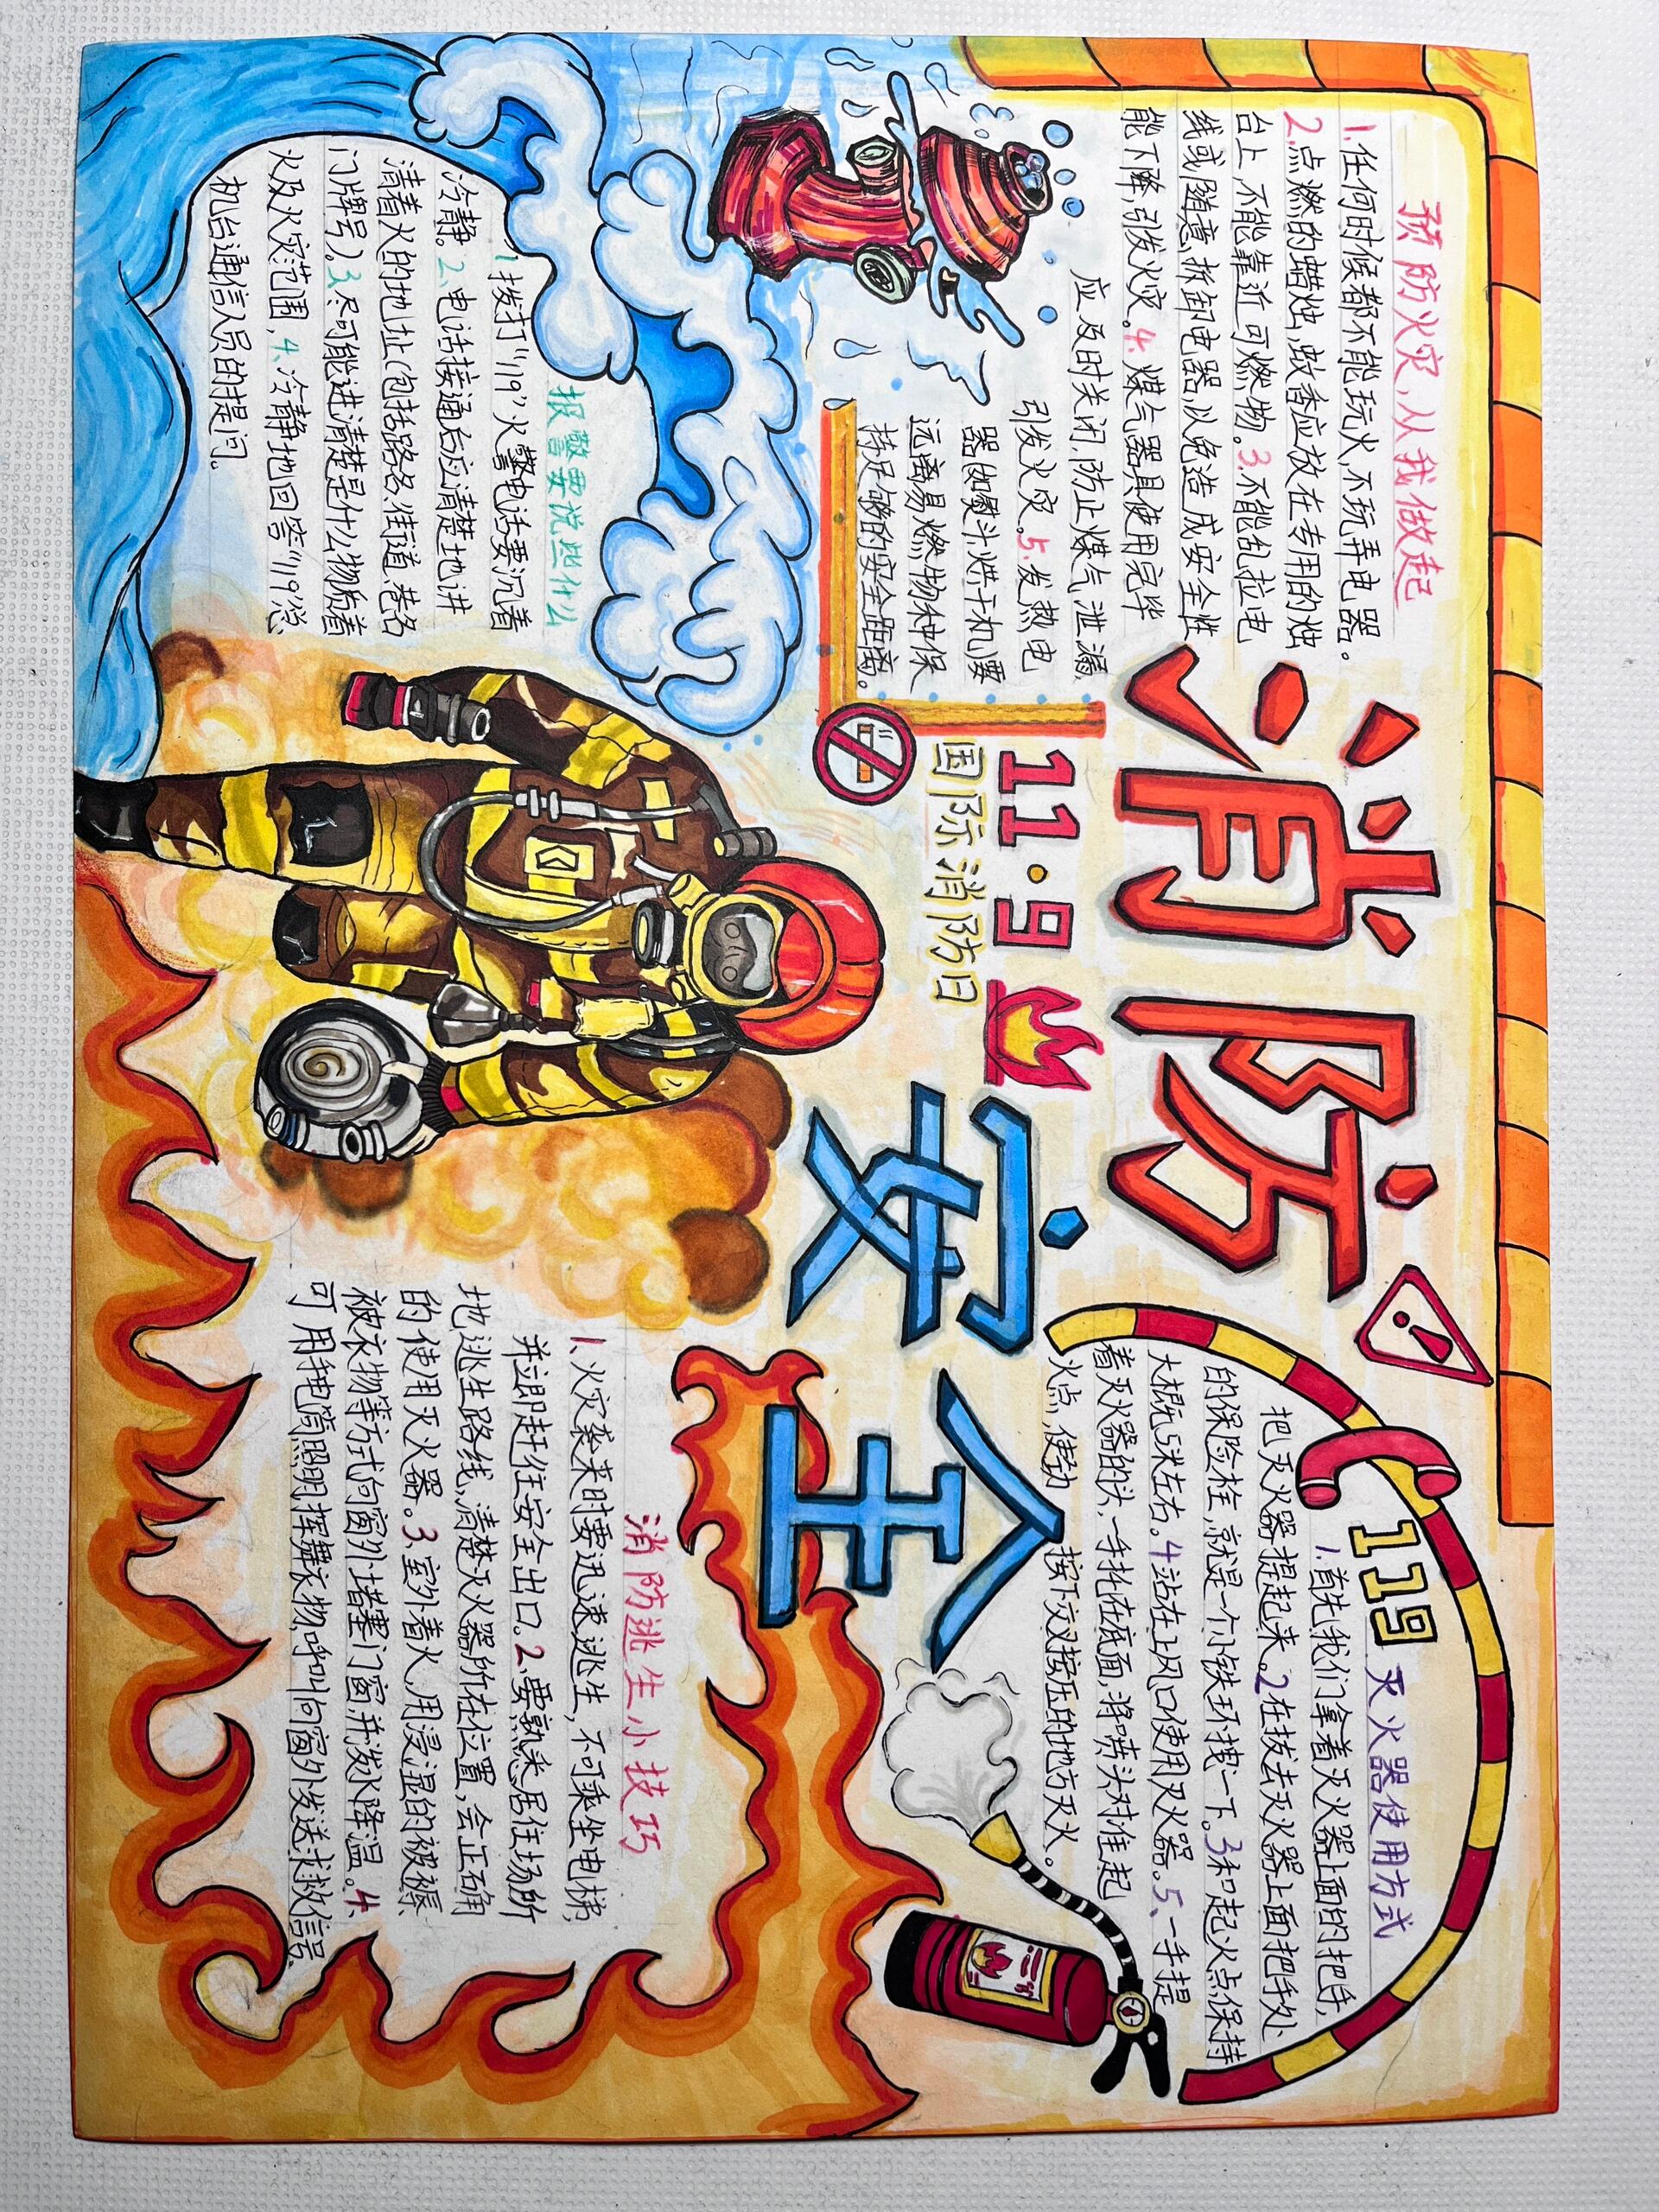 消防
安全
11·9
国际消防日
预防火灾,从我做起
1.任何时候都不能玩火,不玩弄电器。
2.点燃的蜡烛,蚊香应放在专用的烛
台上,不能靠近可燃物。3.不能乱拉电
线或随意拆卸电器,以免造成安全性
能下降,引发火灾。4.煤气器具使用完毕
应及时关闭,防止煤气泄漏
引发火灾。5.发热电
器如熨斗烘干机要
远离易燃物种保
持足够的安全距离。
报警要说些什么
1拨打“119”火警电话要沉着
冷静。2.电话接通后应清楚地讲
清着火的地址(包括路名、街道、巷名
门牌号)。3.尽可能进清楚是什么物质着
火及火灾范围,4.冷静地回答“119”总
机台通信人员的提问。
119
灭火器使用方式
1.首先我们拿着灭火器上面的把手,
把灭火器提起来。2在拔去灭火器上面把手处
的保险栓,就是一个小铁环拽一下。3和起火点保持
大概5米左右。4站在上风口使用灭火器。5、一手提
着灭火器的头,一手托在底面,将喷头对准起
火点,使劲按下交叉按压的地方灭火。
消防逃生小技巧
1.火灾袭来时要迅速逃生,不可乘坐电梯,
并立即赶往安全出口。2.要熟悉居住场所
地逃生路线,清楚灭火器所在位置,会正确
的使用灭火器。3、室外着火,用浸湿的被褥、
被衣物等方式向窗外堵塞门窗,并泼水降温。4、
可用手电筒照明挥舞衣物,呼叫向窗外发送求救信号。